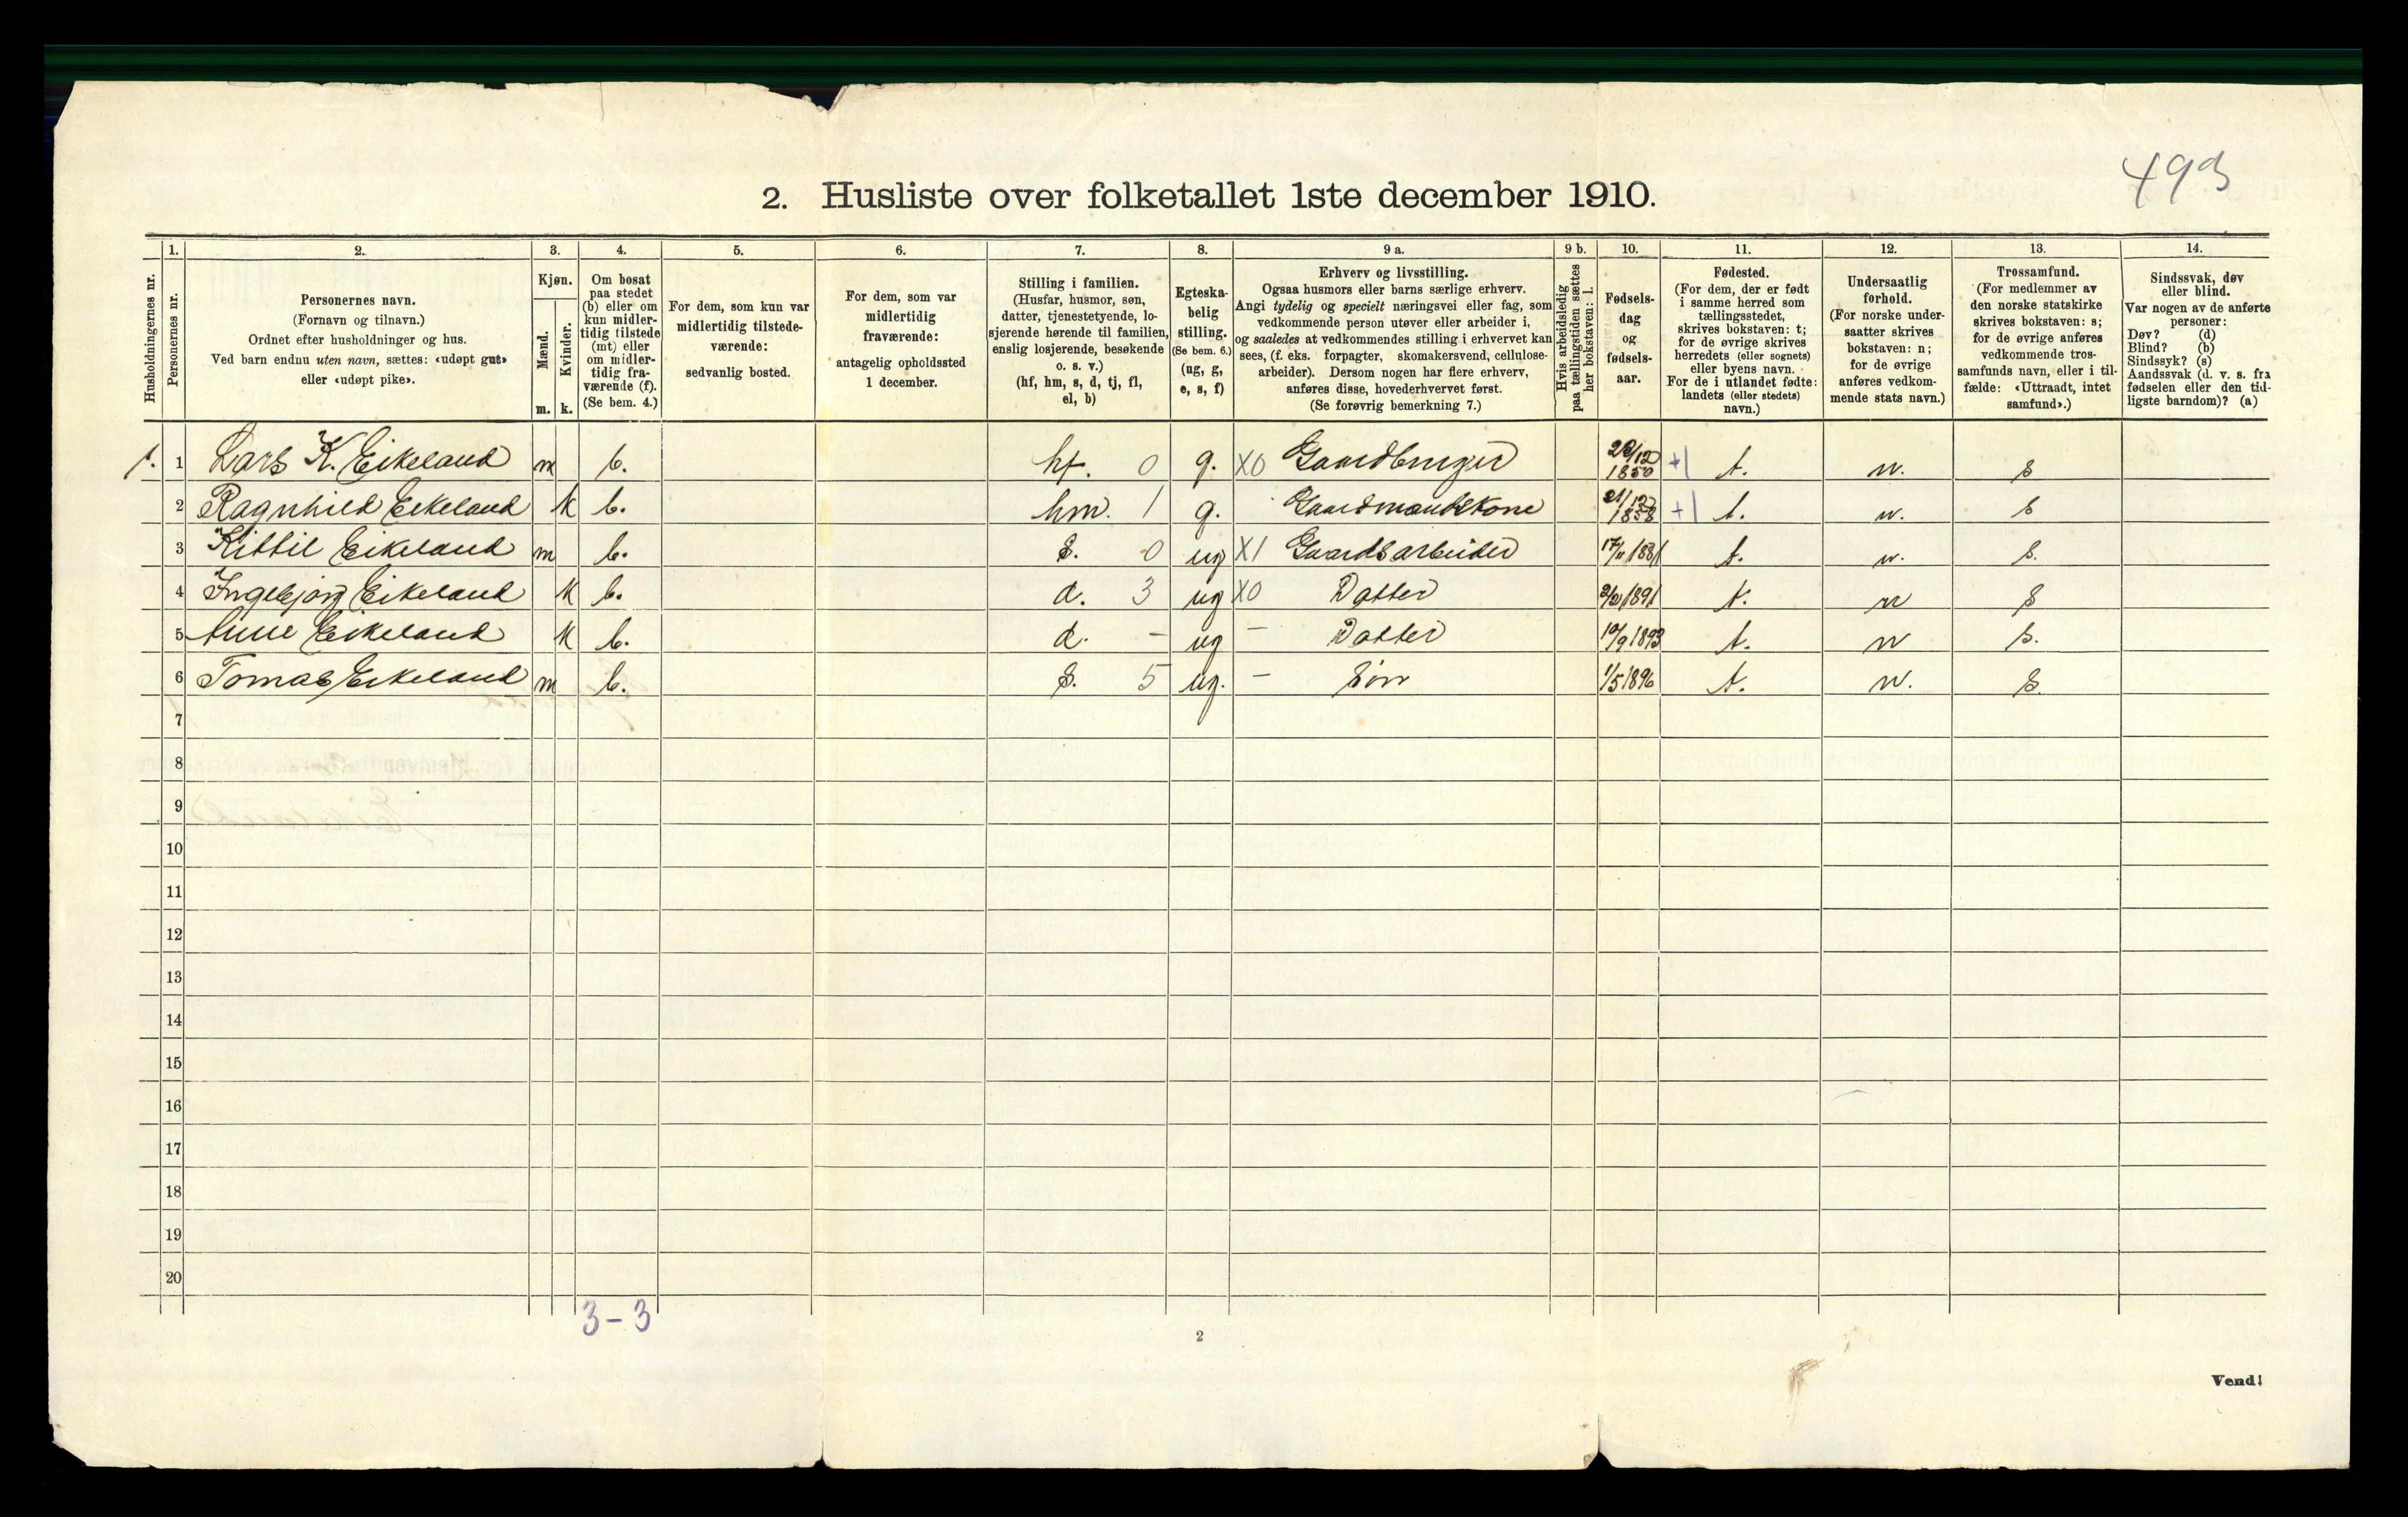 493
2. Husliste over folketallet 1ste december 1910.
Husholdningernes nr.
1.
Personernes nr.
2.
Personernes navn.
(Fornavn og tilnavn.)
Ordnet efter husholdninger og hus.
Ved barn endnu uten navn, sættes: «udøpt gut»
eller «udøpt pike».
3.
Kjøn.
Mænd.
Kvinder.
m. k.
4.
Om bosat
paa stedet
(b) eller om
kun midler-
tidig tilstede
(mt) eller
om midler-
tidig fra-
værende (f).
(Se bem. 4.)
5.
For dem, som kun var
midlertidig tilstede-
værende:
sedvanlig bosted.
6.
For dem, som var
midlertidig
fraværende:
antagelig opholdssted
1 december.
7.
Stilling i familien.
(Husfar, husmor, søn,
datter, tjenestetyende, lo-
sjerende hørende til familien,
enslig losjerende, besøkende
o. s. v.)
(hf, hm, s, d, tj, fl,
el, b)
8.
Egteska-
belig
stilling.
(Se bem. 6.)
(ug, g,
e, s, f)
9 a.
Erhverv og livsstilling.
Ogsaa husmors eller barns særlige erhverv.
Angi tydelig og specielt næringsvei eller fag, som
vedkommende person utøver eller arbeider i,
og saaledes at vedkommendes stilling i erhvervet kan
sees, (f. eks. forpagter, skomakersvend, cellulose-
arbeider). Dersom nogen har flere erhverv,
anføres disse, hovederhvervet først.
(Se forøvrig bemerkning 7.)
9 b.
Hvis arbeidsledig
paa tællingstiden sættes
her bokstaven: l.
10.
Fødsels-
dag
og
fødsels-
aar.
11.
Fødested.
(For dem, der er født
i samme herred som
tællingsstedet,
skrives bokstaven: t;
for de øvrige skrives
herredets (eller sognets)
eller byens navn.
For de i utlandet fødte:
landets (eller stedets)
navn.)
12.
Undersaatlig
forhold.
(For norske under-
saatter skrives
bokstaven: n;
for de øvrige
anføres vedkom-
mende stats navn.)
13.
Trossamfund.
(For medlemmer av
den norske statskirke
skrives bokstaven: s;
for de øvrige anføres
vedkommende tros-
samfunds navn, eller i til-
fælde: «Uttraadt, intet
samfund».)
14.
Sindssvak, døv
eller blind.
Var nogen av de anførte
personer:
Døv? (d)
Blind? (b)
Sindssyk? (s)
Aandssvak (d. v. s. fra
fødselen eller den tid-
ligste barndom)? (a)
1. 1 Lars K. Eikeland m b. hf. 0 g. X0 Gaardbruger 1850 +1 t. n. s
2 Ragnhild Eikeland k b. hm. 1 g. Gaardmandskone 1858 +1 t. n. s
3 Kittil Eikeland m b. s. 0 ug X1 Gaardsarbeider 1881 t. n. s.
4 Ingebjørg Eikeland k b. d. 3 ug X0 Datter 1891 t. n s
5 Anne Eikeland k b. d. - ug - Datter 10/9 1893 t. n s.
6 Tomas Eikeland m b. s. 5 ug. - Søn 1/5 1896 t. n. s.
7
8
9
10
11
12
13
14
15
16
17
18
19
20
3-3
2
Vend!